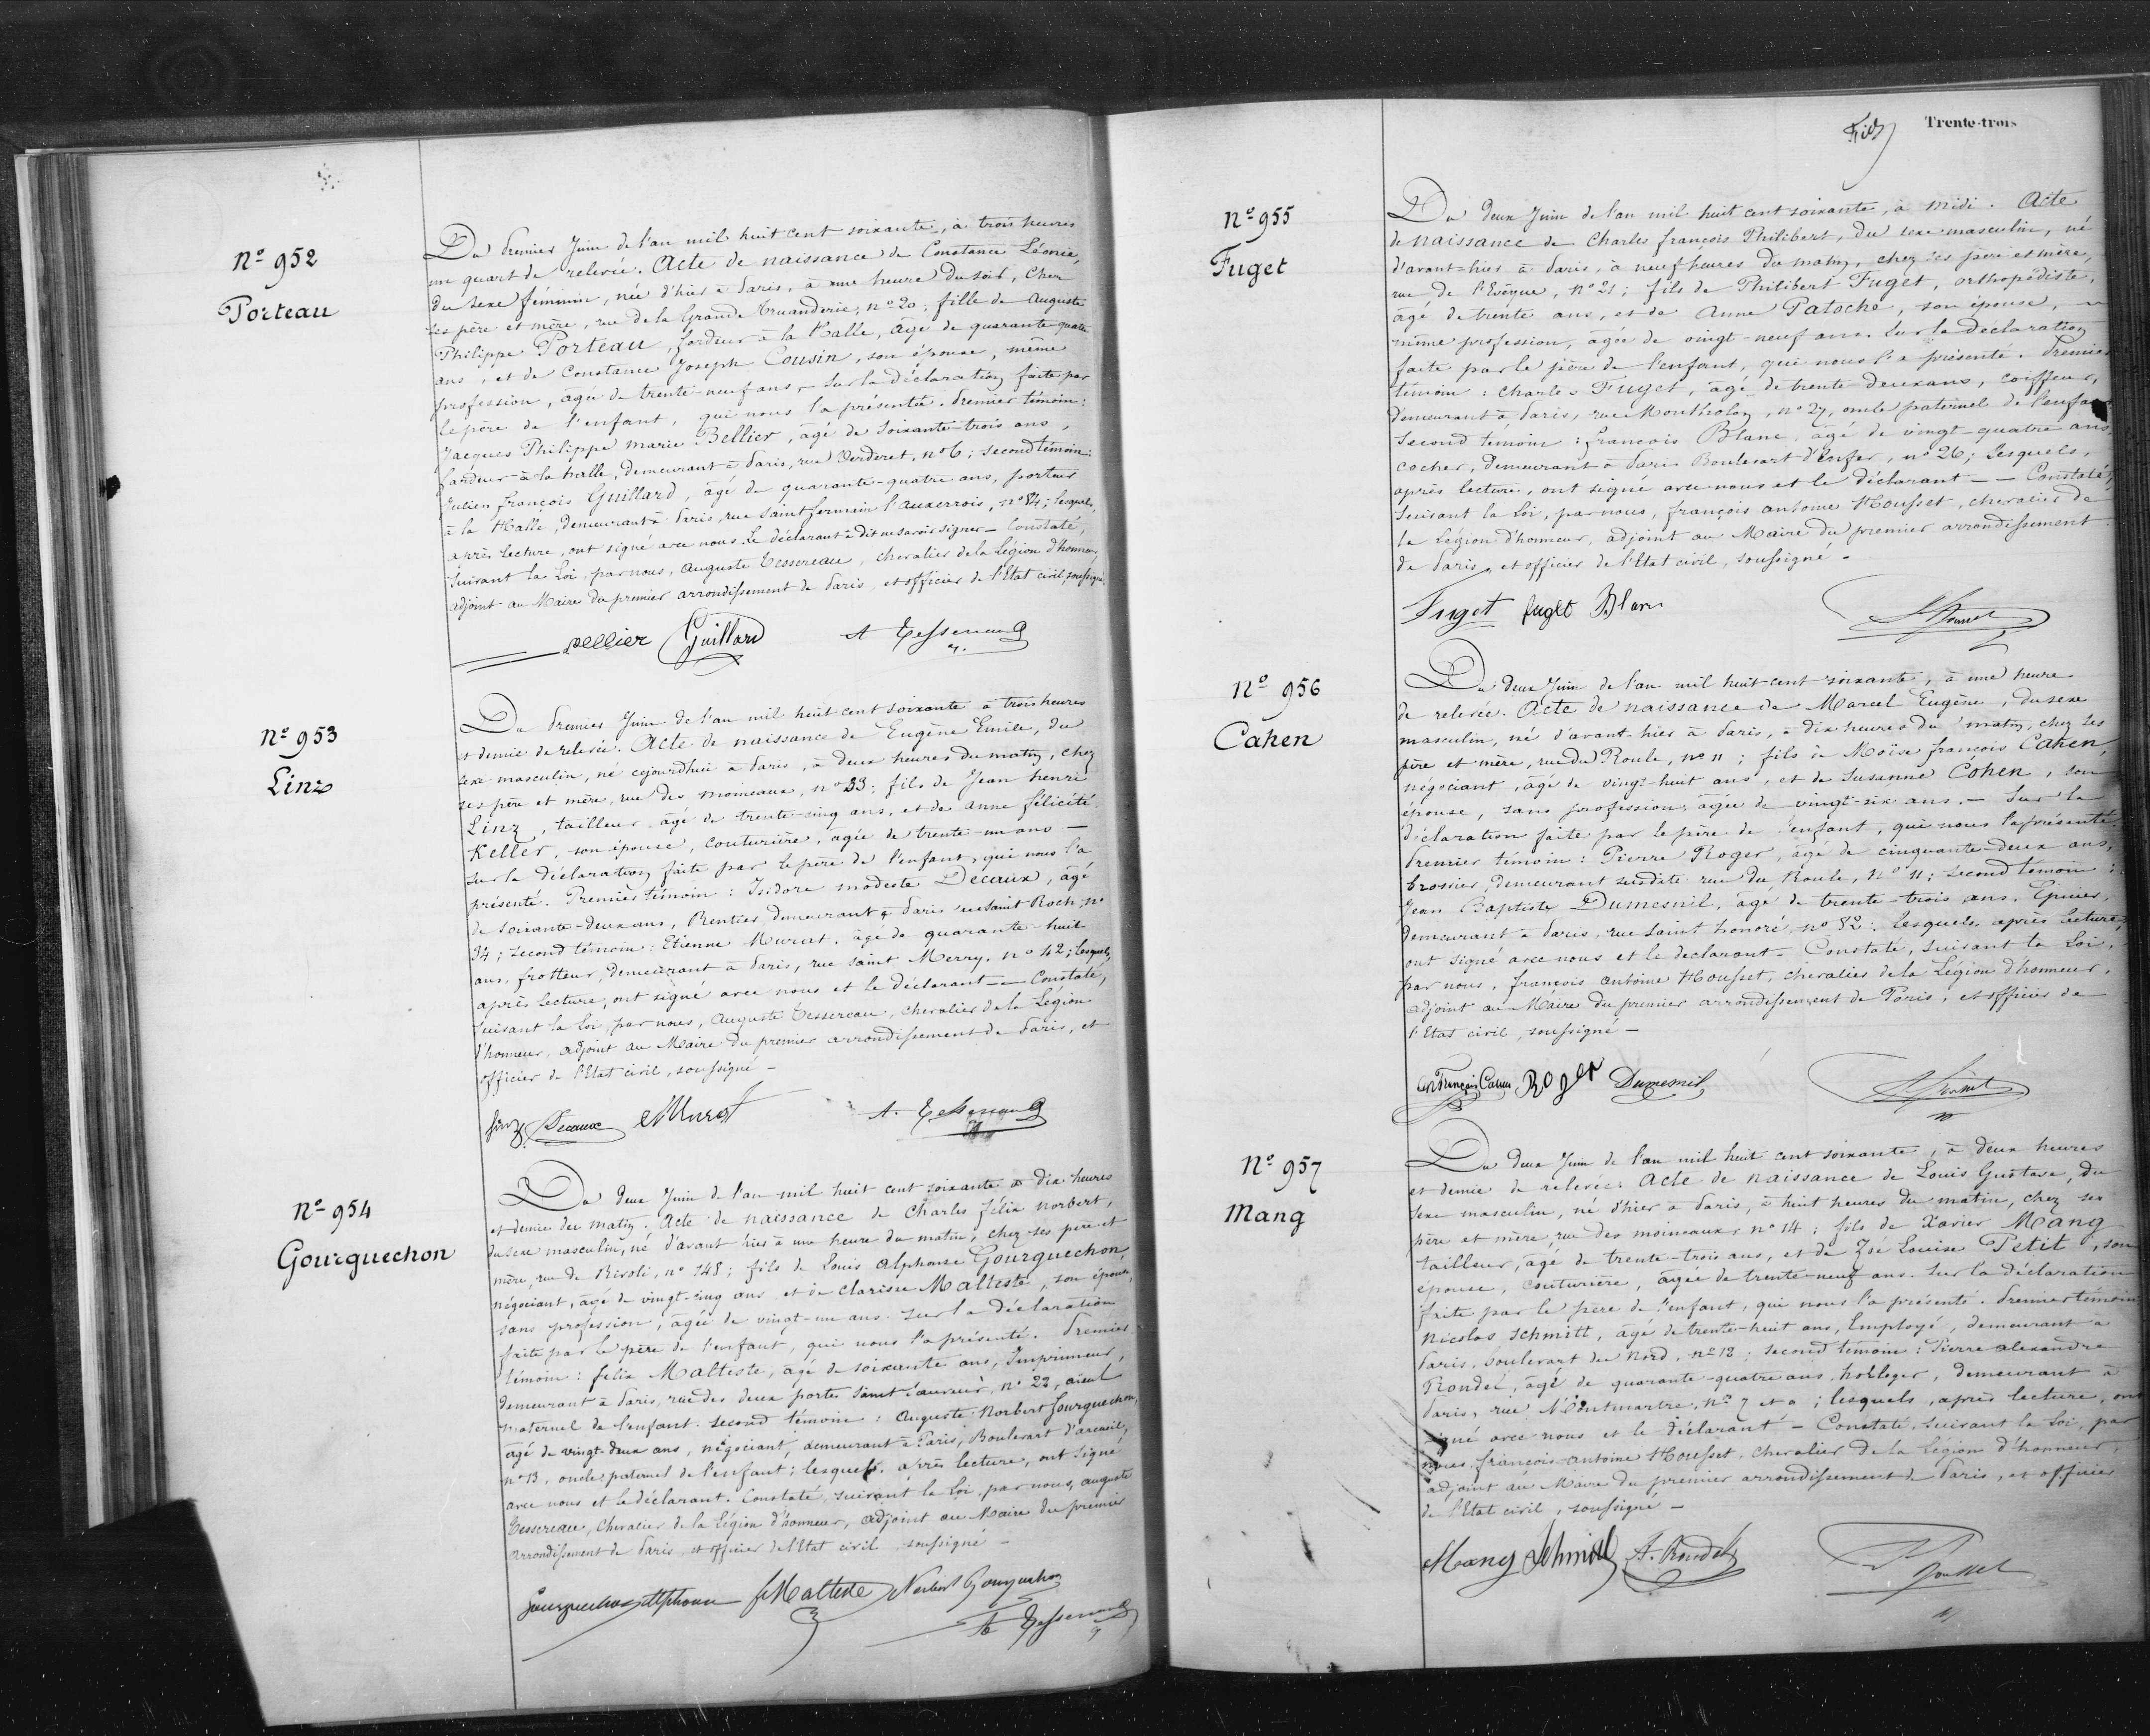 Nº 952
Porteau
Du Premier Juin de l'an mil huit cent soixante, à trois heures
un quart de relevée. Acte de naissance de Constance Léonie,
du sexe féminin, née d'hier à Paris, à une heure du soir, chez
ses père et mère, rue de la Grande Truanderie, nº 20; fille de Auguste
Philippe Porteau, fardeur à la Halle, âgé de quarante-quatre
ans, et de Constance Joseph Cousin, son épouse, même
profession, agée de trente-neuf ans. Sur la déclaration faite par
le père de l'enfant, qui nous l'a présentée. Premier témoin:
Jacques Philippe Marie Bellier, âgé de soixante-trois ans,
fardeur à la halle, demeurant à Paris, rue Verderet, nº 6; second témoin:
Julien François Guillard, âgé de quarante-quatre ans, porteur
à la Halle, demeurant à Paris, rue Saint Germain l'auxerrois, nº 84; lesquels,
après lecture, ont signé avec nous. Le déclarant a dit ne savoir signer – Constaté,
suivant la Loi, par nous, Auguste Tessereau, chevalier de la Légion d'honneur,
adjoint au Maire du premier arrondissement de Paris, et officier de l'Etat civil, soussigné.
Bellier Guillard A Tessereau
Nº 953
Linz
Du Premier Juin de l'an mil huit cent soixante à trois heures
et demie de relevée. Acte de naissance de Eugène Emile, du
sexe masculin, né cejourdhui à Paris, à deux heures du matin, chez
ses père et mère, rue des moineaux, nº 33; fils de Jean henri
Linz, tailleur, âgé de trente-cinq ans, et de anne félicité
Keller, son épouse, couturière, agée de trente-un ans —
sur la déclaration faite par le père de l'enfant, qui nous l'a
présenté. Premier témoin: Isidore modeste Decaux, âgé
de soixante-deux ans, Rentier, demeurant à Paris rue Saint Roch, nº
34; second témoin: Etienne Murat, âgé de quarante-huit
ans, frotteur, demeurant à Paris, rue saint Merry, nº 42; lesquels,
après lecture, ont signé avec nous et le déclarant — Constaté,
suivant la Loi, par nous, Auguste Tessereau, chevalier de la Légion
d'honneur, adjoint au Maire du premier arrondissement de Paris, et
officier de l'Etat civil, soussigné –
Linz Decaux Murat A. Tessereau
Nº 954
Gourguechon
Du deux Juin de l'an mil huit cent soixante à dix heures
et demie du matin. Acte de naissance de Charles félix norbert,
du sexe masculin, né d'avant hier à une heure du matin, chez ses père et
mère, rue de Rivoli, nº 148; fils de Louis Alphonse Gourguechon,
négociant, âgé de vingt-cinq ans et de clarisse Malteste, son épouse,
sans profession, agée de vingt-un ans. Sur la déclaration
faite par le père de l'enfant, qui nous l'a présenté. Premier
témoin: félix Malteste, âgé de soixante ans, Imprimeur,
demeurant à Paris, rue des deux portes Saint Sauveur, nº 22, aïeul
maternel de l'enfant. second témoin: Auguste Norbert Gourguechon,
âgé de vingt-deux ans, négociant, demeurant à Paris, Boulevart d'arcueil,
nº 13, oncle paternel de l'enfant; lesquels, après lecture, ont signé
avec nous et le déclarant. Constaté, suivant la Loi, par nous, auguste
Tessereau, Chevalier de la Légion d'honneur, adjoint au Maire du premier
arrondissement de Paris, et officier de l'Etat civil, soussigné –
Gourguechon Alphonse F Malteste Norbert Gourguechon
A Tessereau
Trente-trois
Nº 955
Fuget
Du deux Juin de l'an mil huit cent soixante, à midi. Acte
de naissance de Charles françois Philibert, du sexe masculin, né
d'avant-hier à Paris, à neuf heures du matin, chez ses père et mère,
rue de l'Evêque, nº 21; fils de Philibert Fuget, orthopédiste,
âgé de trente ans, et de Anne Patoche, son épouse,
même profession, agée de vingt-neuf ans. Sur la déclaration
faite par le père de l'enfant, qui nous l'a présenté. Premier
témoin: Charles Fuget, âgé de trente-deux ans, coiffeur,
demeurant à Paris, rue Montholon, nº 27, oncle paternel de l'enfant
second témoin: françois Blanc, âgé de vingt-quatre ans,
cocher, demeurant à Paris Boulevart d'Enfer, nº 26; Lesquels,
après lecture, ont signé avec nous et le déclarant — Constaté,
suivant la Loi, par nous, françois antoine Housset, chevalier de
la Légion d'honneur, adjoint au Maire du premier arrondissement
de Paris, et officier de l'Etat civil, soussigné –
Fuget fuget Blanc
Nº 956
Cahen
Du deux Juin de l'an mil huit cent soixante, à une heure
de relevée. Acte de naissance de Marcel Eugène, du sexe
masculin, né d'avant-hier à Paris, à dix heures du matin, chez ses
père et mère, rue du Roule, nº 11; fils de Moïse françois Cahen,
négociant, âgé de vingt-huit ans, et de Susanne Cohen, son
épouse, sans profession, agée de vingt-six ans. – Sur la
déclaration faite par le père de l'enfant, qui nous l'a présenté.
Premier témoin: Pierre Roger, âgé de cinquante-deux ans,
brossier, demeurant susdite rue du Roule, Nº 11; second témoin:
Jean Baptiste Dumesnil, âgé de trente-trois ans, Epicier,
demeurant à Paris, rue Saint honoré, nº 82; lesquels, après lecture,
ont signé avec nous et le déclarant – Constaté, suivant la Loi,
par nous, françois antoine Housset, chevalier de la Légion d'honneur,
adjoint au Maire du premier arrondissement de Paris, et officier de
l'Etat civil, soussigné –
François Cahen Roger Dumesnil
Nº 957
Mang
Du deux Juin de l'an mil huit cent soixante, à deux heures
et demie de relevée. Acte de naissance de Louis Gustave, du
sexe masculin, né d'hier à Paris, à huit heures du matin, chez ses
père et mère, rue des moineaux, nº 14; fils de Xavier Mang
tailleur, âgé de trente-trois ans, et de Zoé Louise Petit, son
épouse, couturière, agée de trente-neuf ans. Sur la déclaration
faite par le père de l'enfant, qui nous l'a présenté. Premier témoin
Nicolas Schmitt, âgé de trente-huit ans, Employé, demeurant à
Paris, boulevart du Nord, nº 12; second témoin: Pierre alexandre
Rondel, âgé de quarante-quatre ans, horloger, demeurant à
Paris, rue Montmartre, nº 7 et 9; lesquels, après lecture, ont
signé avec nous et le déclarant – Constaté, suivant la Loi, par
nous, françois antoine Housset, chevalier de la Légion d'honneur,
adjoint au Maire du premier arrondissement de Paris, et officier
de l'Etat civil, soussigné –
Mang Schmitt A. Rondel